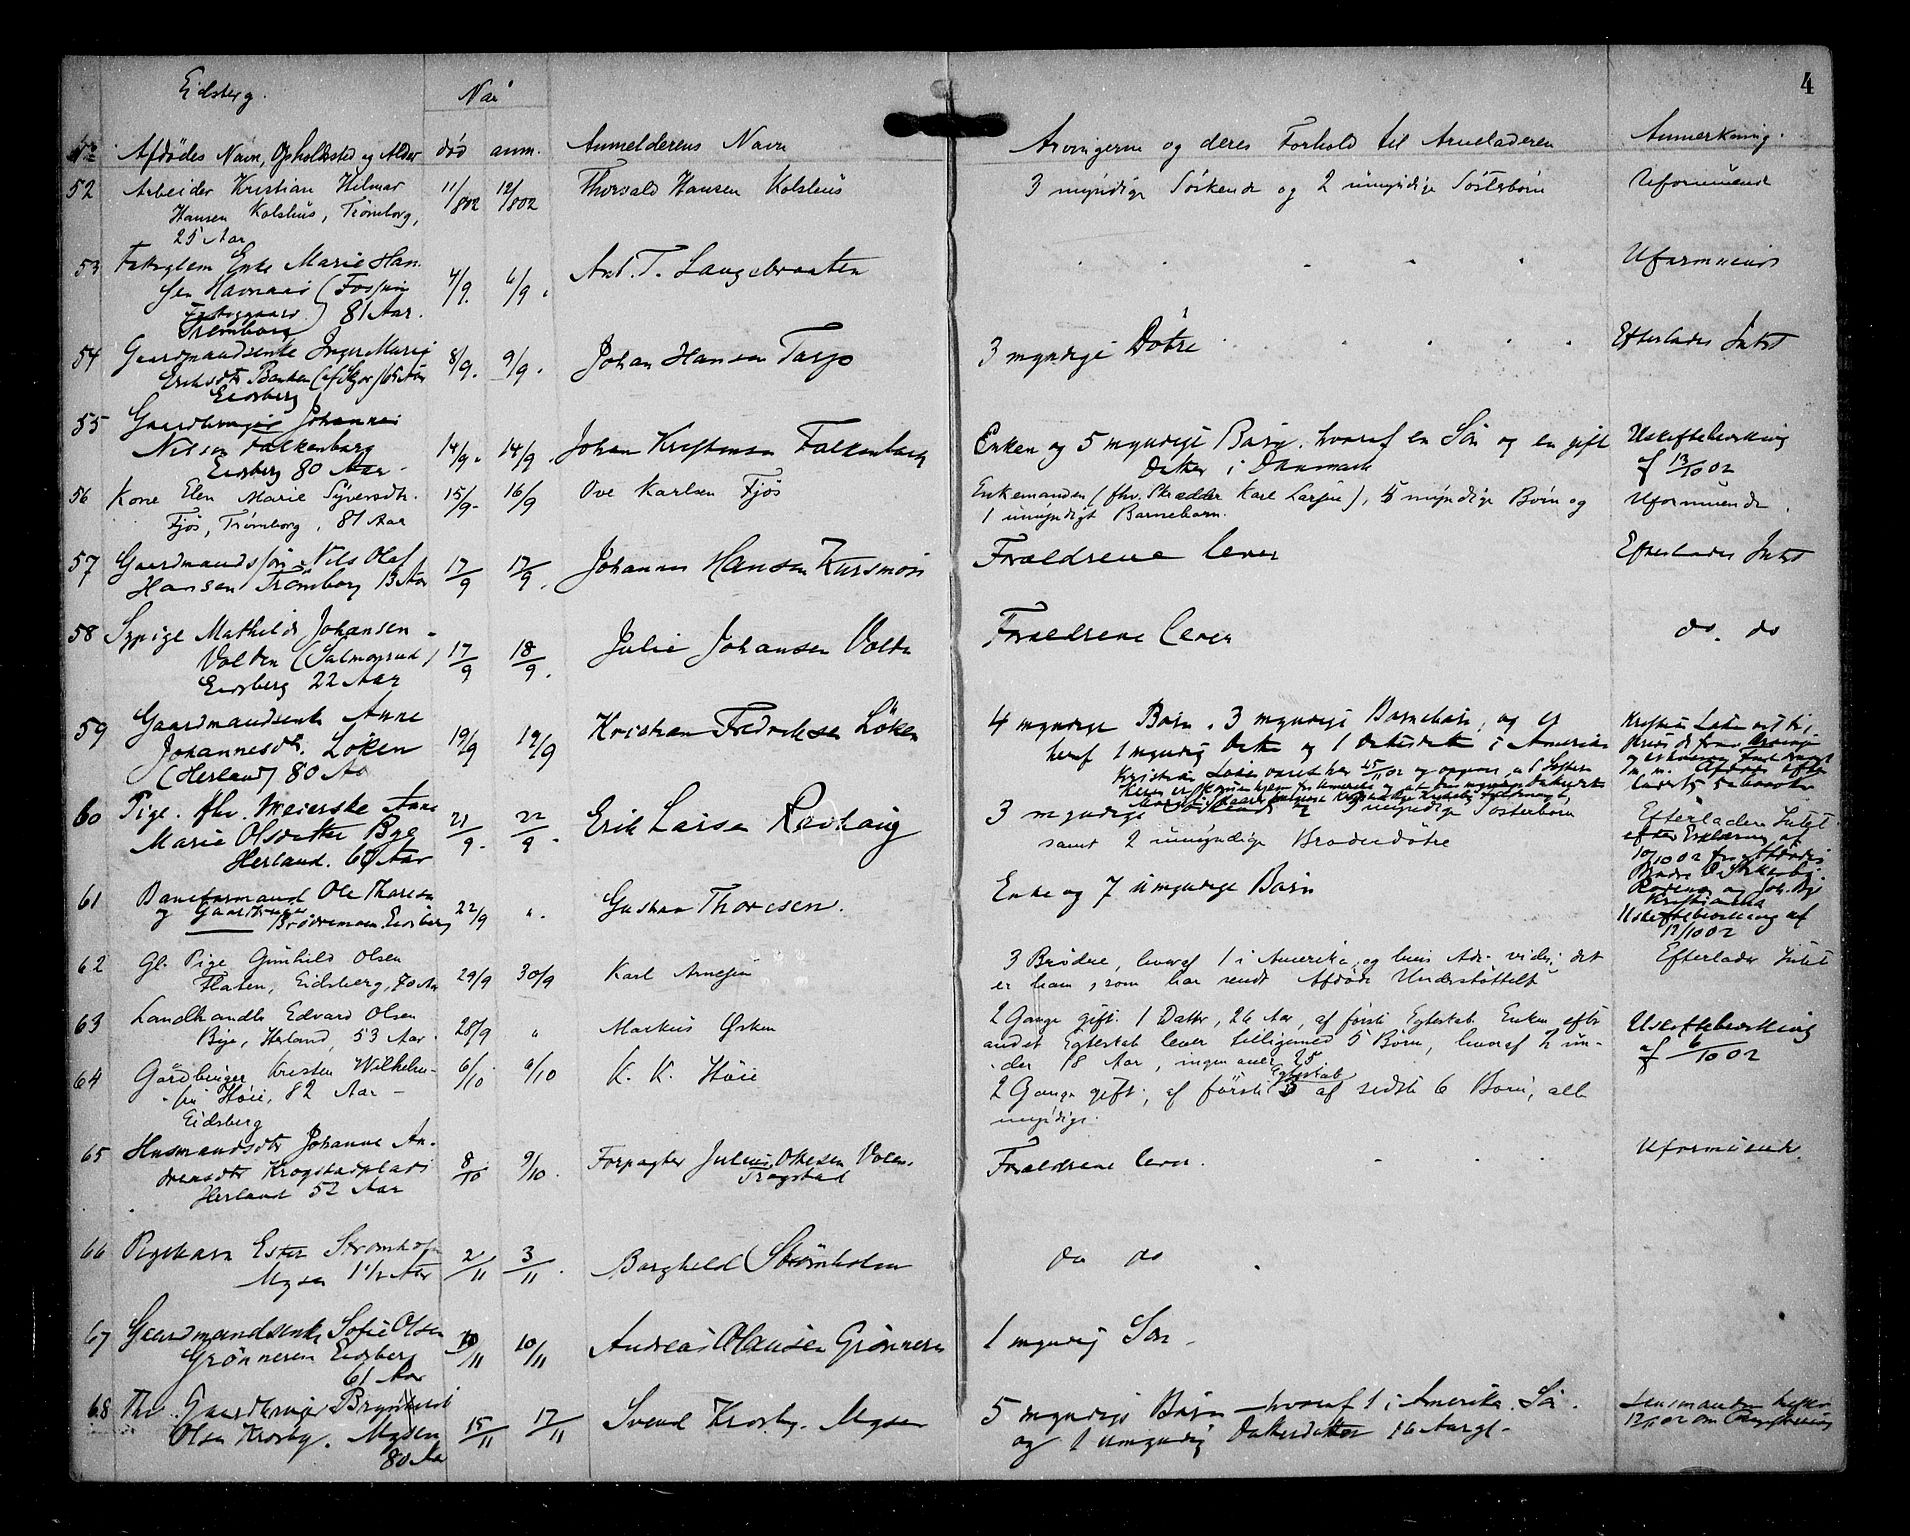 4
Eidsberg.
Naar
No Afdödes Navn, Opholdssted og Alder død anm. Anmelderens Navn Arvingerne og deres Forhold til Arveladeren Anmerkning.
52 Arbeider Kristian Hilmar 11/8 02 12/8 02 Thorvald Hansen Kolshus 3 myndige Söskende og 2 umyndige Søsterbørn Uformuende
Hansen Kolshus, Trömborg,
25 Aar
53 Fattiglem Enke Marie Han-
sen Havnaas (Fossum 4/9. 6/9. Ant. T. Langebraaten Uformuende
Fattiggaard)
Trømborg 81 Aar.
54 Gaardmandsenke Inger Marie 8/9. 9/9. Johan Hansen Tasjo 3 myndige Døtre Efterlader Intet
Eriksdtr Bakken 65 Aar
Eidsberg
55 Gaardbruger Johannes
Nilsen Falkenberg 14/9. 14/9 Johan Kristensen Falkenberg Enken og 5 myndige Børn, hvoraf en Sön og en gift Uskiftebevilling
Eidsberg 80 Aar. Datter i Danmark af 13/10 02
56 Kone Elen Marie Syversdtr. 15/9. 16/9 Ove Karlsen Fjös Enkemanden (fhv. Skrædder Karl Larsen), 5 myndige Börn og Uformuende.
Fjös, Trömborg, 81 Aar 1 umyndigt Barnebarn.
57 Gaardmandssön Nils Olaf 17/9 17/9. Johannes Hansen Forældrene lever Efterlader Intet
Hansen Trömborg 13 Aar
58 Sypige Mathilde Johansen
Volden (Salmonrud) 17/9 18/9. Julie Johansen Volden Forældrene lever do. do
Eidsberg 22 Aar
59 Gaardmandsenke Anne 19/9 19/9 Kristian Fredriksen Löken 4 myndige Børn, 3 myndige Barnebørn, og er
Johannesdtr. Löken heraf 1 myndig Datter og 1 Datterdatter i Amerika
(Herland) 80 Aar
60 Pige, fhv. Meierske Anne 21/9. 22/9. Erik Larsen Ravhaug 3 myndige Söskende, 2 myndige Søsterbørn Efterlader Intet
Marie Olsdatter Bye samt 2 umyndige Broderdøtre efter Erklæring af
Herland. 67 Aar 10/10 02 fra Afdødes
61 Baneformand Ole Thoresen
og Gaardbruger 22/9 ". Gustav Thoresen. Enke og 7 umyndige Børn
Brödremoen, Eidsberg Uskiftebevilling af
12/10 02
62 Gl. Pige Gunhild Olsen 29/9 30/9 Karl Arnesen 3 Brødre, hvoraf 1 i Amerika, og hvis Adr. vides; det Efterlader Intet
Flaten, Eidsberg, 70 Aar er ham, som har sendt Afdöde Understöttelse
63 Landhandler Edvard Olsen 28/9 " Markus Øsken 2 Gange gift. 1 Datter, 26 Aar, af förste Egteskab. Enken efter Uskiftebevilling
Bye, Herland, 53 Aar. andet Egteskab lever tilligemed 5 Börn, hvoraf 2 un- af 6/10 02
der 18 Aar, ingen over 25
64 Gårdbruger Kristen Wilhelm- 6/10 6/10 K. K. Höie 2 Gange gift; af förste Egteskab 3 af sidste 6 Börn, alle
sen Höie, 82 Aar – myndige.
Eidsberg
65 Husmandsdtr Johanne An-
dreasdtr Krogstadplads 8/10 9/10. Forpagter Julius Ottesen Volen. Forældrene lever. Uformuende.
Herland 52 Aar Trøgstad
66 Pigebarn Ester Strømholm 2/11 3/11. Borghild Strømholm do do
Mysen 1 1/2 Aar
67 Gaardmandsenke Sofie Olsen 10/11 10/11 Andreas Olausen Grönneren 1 myndig Sön
Grönneren Eidsberg
61 Aar
68 Fhv. Gaardbruger Brynhild 15/11 17/11 Svend Krosby. Mysen 5 myndige Börn – hvoraf 1 i Amerika. Sön.
Olsen Krosby. Mysen og 1 umyndig Datterdatter 16 Aargl.
80 Aar